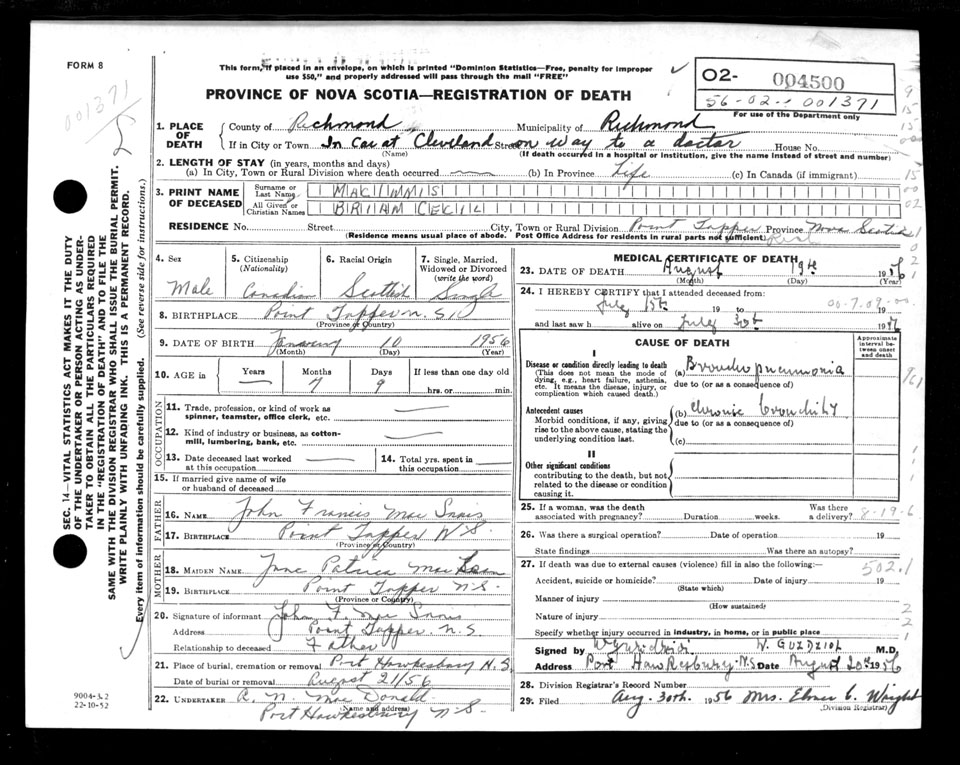 FORM 8
This form, if placed in an envelope, on which is printed "Dominion Statistics—Free, penalty for improper
use $50," and properly addressed will pass through the mail "FREE"
PROVINCE OF NOVA SCOTIA—REGISTRATION OF DEATH
02- 004500
56-02-001371
For use of the Department only
001371
1. PLACE OF DEATH
County of Richmond Municipality of Richmond
If in City or Town In Car at Cleveland Street on way to a doctor House No.
(Name) (If death occurred in a hospital or institution, give the name instead of street and number)
2. LENGTH OF STAY (in years, months and days)
(a) In City, Town or Rural Division where death occurred (b) In Province Life (c) In Canada (if immigrant)
3. PRINT NAME OF DECEASED
Surname or Last Name MAC INNIS
All Given or Christian Names BRIAM CECIL
RESIDENCE No. Street City, Town or Rural Division Point Tupper Province Nova Scotia
(Residence means usual place of abode. Post Office Address for residents in rural parts not sufficient.)
4. Sex Male
5. Citizenship (Nationality) Canadian
6. Racial Origin Scottish
7. Single, Married, Widowed or Divorced (write the word) Single
8. BIRTHPLACE Point Tupper N.S.
(Province or Country)
9. DATE OF BIRTH January 10 1956
(Month) (Day) (Year)
10. AGE in Years Months 7 Days 9 If less than one day old hrs. or min.
OCCUPATION
11. Trade, profession, or kind of work as spinner, teamster, office clerk, etc.
12. Kind of industry or business, as cotton-mill, lumbering, bank, etc.
13. Date deceased last worked at this occupation
14. Total yrs. spent in this occupation
15. If married give name of wife or husband of deceased
FATHER
16. NAME John Francis Mac Innis
17. BIRTHPLACE Point Tupper N.S.
(Province or Country)
MOTHER
18. MAIDEN NAME Patrica Mac
19. BIRTHPLACE Point Tupper N.S.
(Province or Country)
20. Signature of informant John F. Mac Innis
Address Point Tupper. N.S.
Relationship to deceased Father
21. Place of burial, cremation or removal Port Hawkesbury N.S.
Date of burial or removal August 21/56
22. UNDERTAKER A. N. Mac Donald
(Name and address)
Port Hawkesbury N.S.
MEDICAL CERTIFICATE OF DEATH
23. DATE OF DEATH August 19th 1956
(Month) (Day) (Year)
24. I HEREBY CERTIFY that I attended deceased from:
July 15th 19 to
and last saw h alive on July 19
CAUSE OF DEATH
Approximate interval between onset and death
I
Disease or condition directly leading to death
(This does not mean the mode of dying, e.g., heart failure, asthenia, etc. It means the disease, injury, or complication which caused death.)
(a) Bronchopneumonia
due to (or as a consequence of)
Antecedent causes
Morbid conditions, if any, giving rise to the above cause, stating the underlying condition last.
(b) Chronic bronchitis
due to (or as a consequence of)
(c)
II
Other significant conditions
contributing to the death, but not related to the disease or condition causing it.
25. If a woman, was the death associated with pregnancy? Duration weeks. Was there a delivery? 8-19-6
26. Was there a surgical operation? Date of operation 19
State findings Was there an autopsy?
27. If death was due to external causes (violence) fill in also the following:— 502.1
Accident, suicide or homicide? Date of injury 19
(State which)
Manner of injury
(How sustained)
Nature of injury
Specify whether injury occurred in industry, in home, or in public place
Signed by W. GUZDZIOL M.D.
Address Port Hawkesbury N.S. Date August 20th 1956
28. Division Registrar's Record Number
29. Filed Aug. 30th. 1956 Mrs. Elmer C. Wright
(Division Registrar)
SEC. 14—VITAL STATISTICS ACT MAKES IT THE DUTY
OF THE UNDERTAKER OR PERSON ACTING AS UNDER-
TAKER TO OBTAIN ALL THE PARTICULARS REQUIRED
IN THE "REGISTRATION OF DEATH" AND TO FILE THE
SAME WITH THE DIVISION REGISTRAR WHO SHALL ISSUE THE BURIAL PERMIT.
WRITE PLAINLY WITH UNFADING INK. THIS IS A PERMANENT RECORD.
Every item of information should be carefully supplied. (See reverse side for instructions.)
9004-3.2
22-10-52